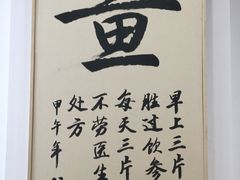 早上三片
胜过饮参
每天三片
不劳医生
处方
甲午年